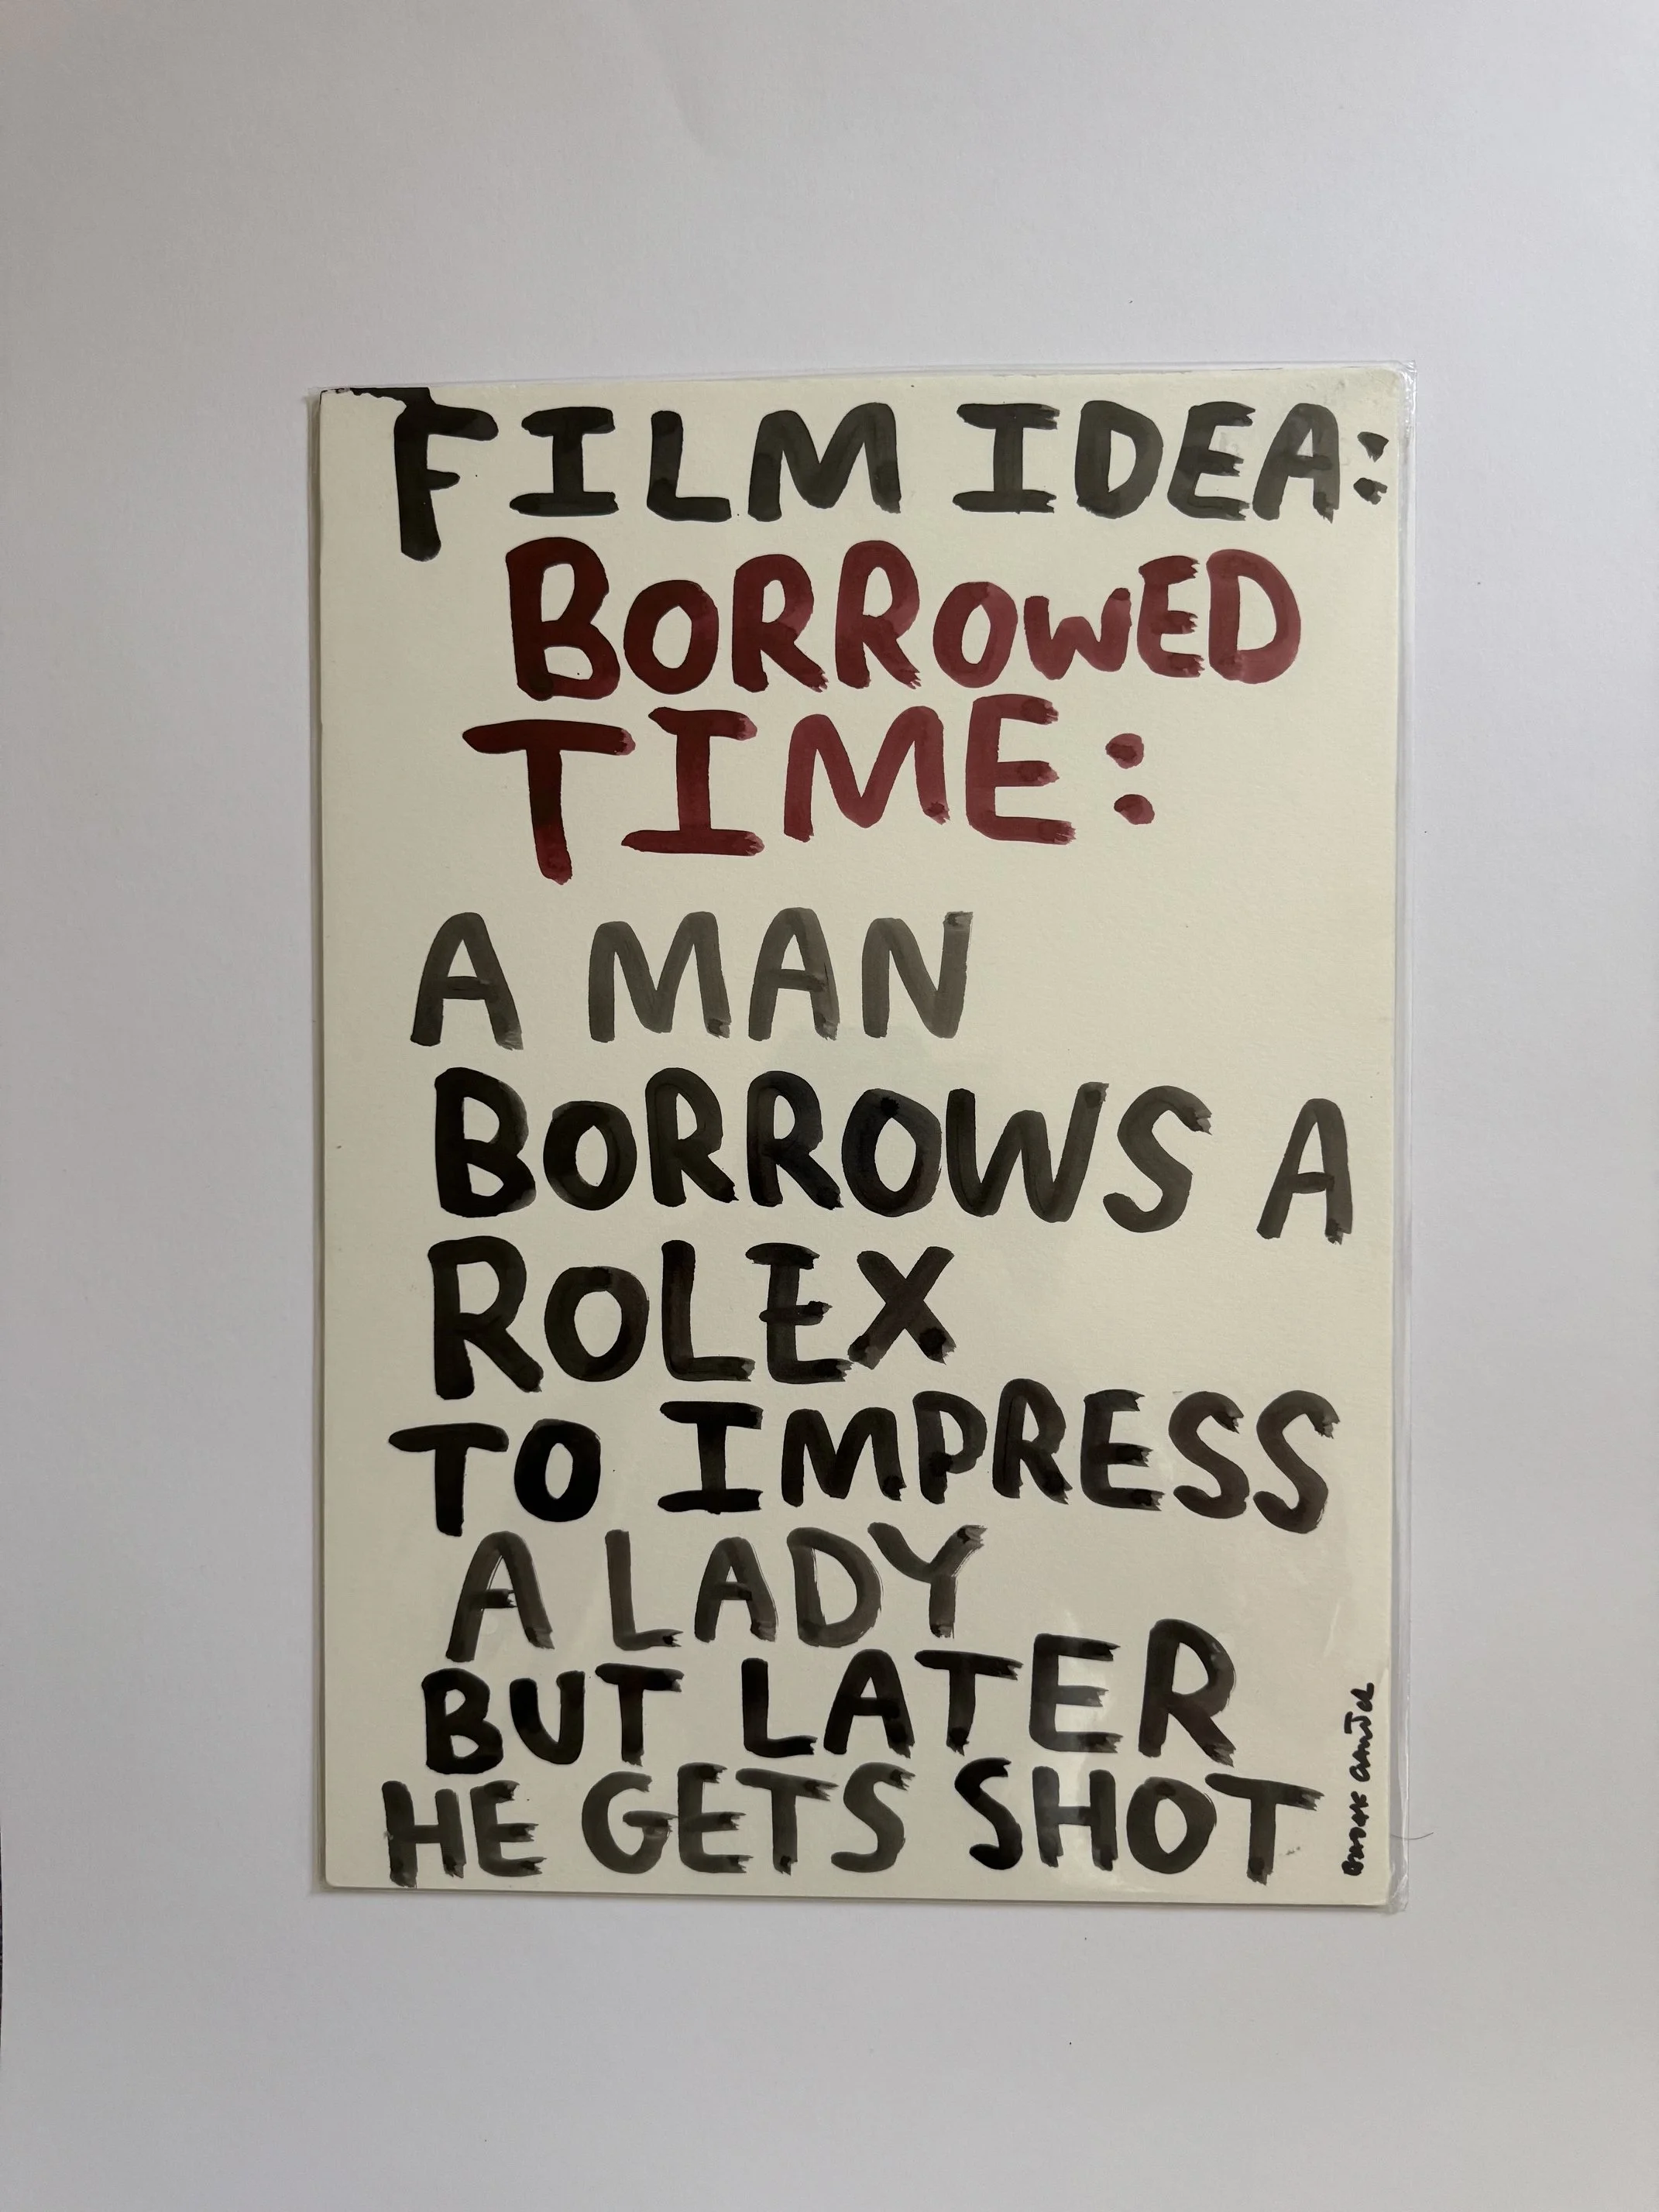 FILM IDEA:
BORROWED
TIME:
A MAN
BORROWS A
ROLEX
TO IMPRESS
A LADY
BUT LATER
HE GETS SHOT